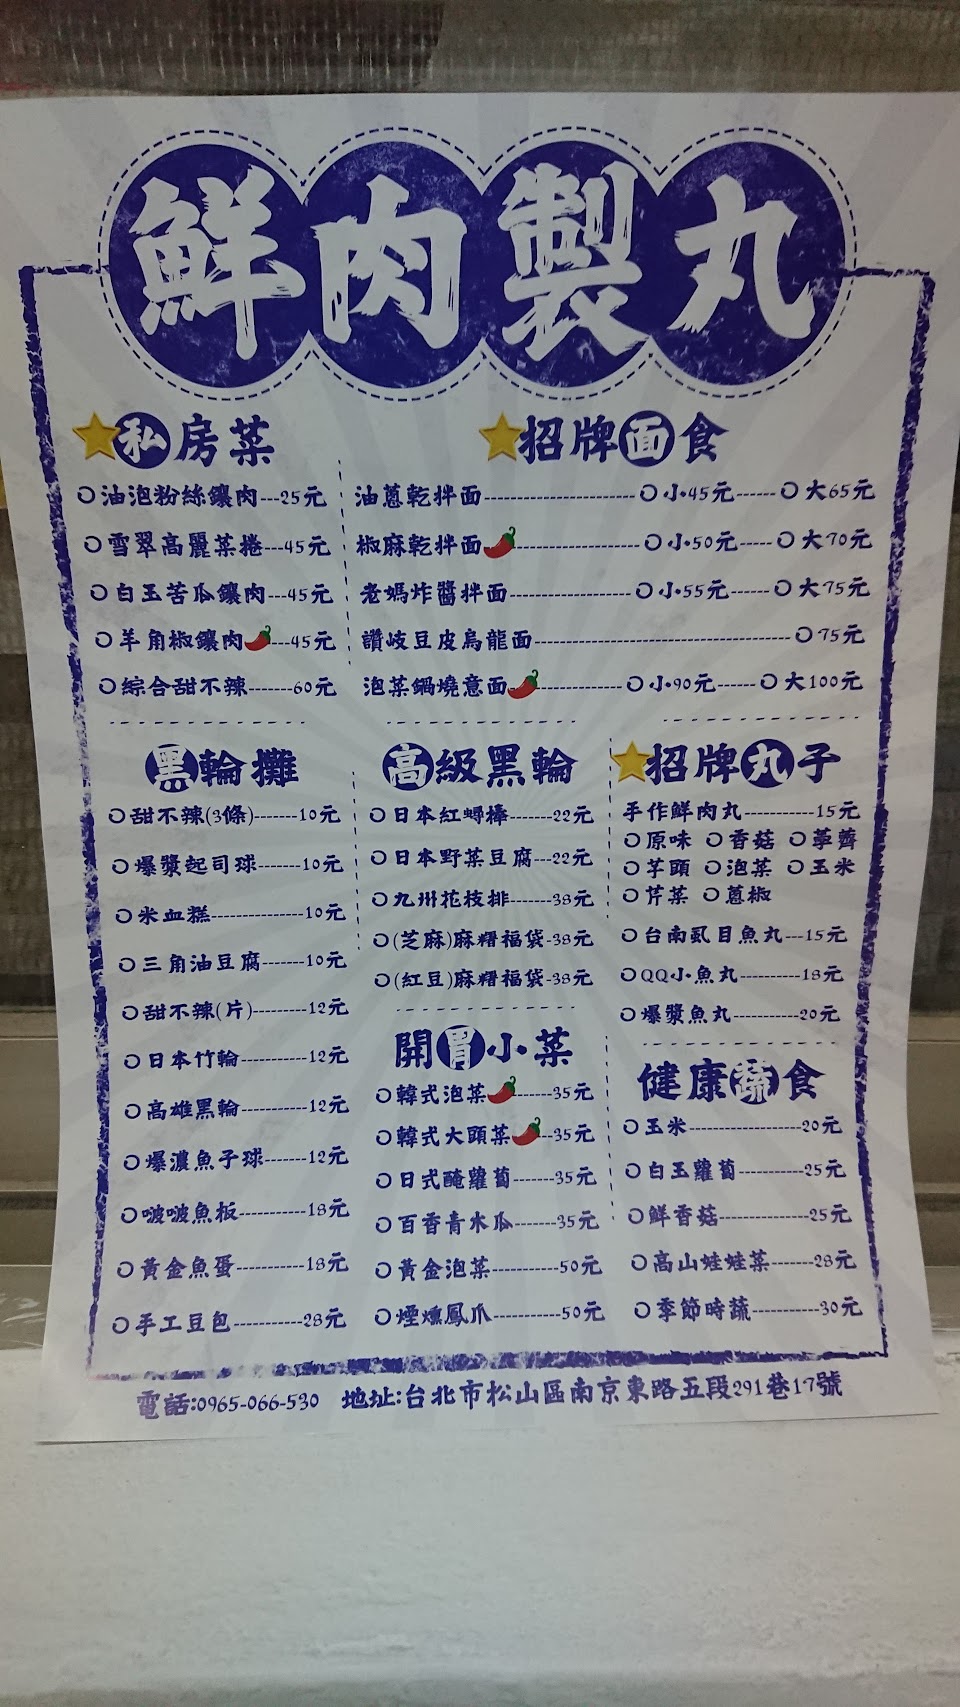 鮮肉製丸
私房菜
油泡粉絲鑲肉---25元
雪翠高麗菜捲---45元
白玉苦瓜鑲肉---45元
羊角椒鑲肉---45元
綜合甜不辣-------60元
招牌面食
油蔥乾拌面------小45元------大65元
椒麻乾拌面------小50元-----大70元
老媽炸醬拌面------小55元------大75元
讚岐豆皮烏龍面------75元
泡菜鍋燒意面------小90元------大100元
黑輪攤
甜不辣(3條)-------10元
爆漿起司球-------10元
米血糕---------------10元
三角油豆腐-------10元
甜不辣(片)---------12元
日本竹輪-----------12元
高雄黑輪-----------12元
爆濃魚子球-------12元
啵啵魚板-----------18元
黃金魚蛋-----------18元
手工豆包-----------28元
高級黑輪
日本紅蟳棒-------22元
日本野菜豆腐---22元
九州花枝排-------38元
(芝麻)麻糬福袋-38元
(紅豆)麻糬福袋-38元
開胃小菜
韓式泡菜-----35元
韓式大頭菜---35元
日式醃蘿蔔-------35元
百香青木瓜-------35元
黃金泡菜-----------50元
煙燻鳳爪-----------50元
招牌丸子
手作鮮肉丸-----------15元
原味 香菇 荸薺
芋頭 泡菜 玉米
芹菜 蔥椒
台南虱目魚丸---15元
QQ小魚丸----------18元
爆漿魚丸-----------20元
健康蔬食
玉米-------------------20元
白玉蘿蔔-----------25元
鮮香菇---------------25元
高山娃娃菜-------28元
季節時蔬-----------30元
電話:0965-066-530 地址:台北市松山區南京東路五段291巷17號